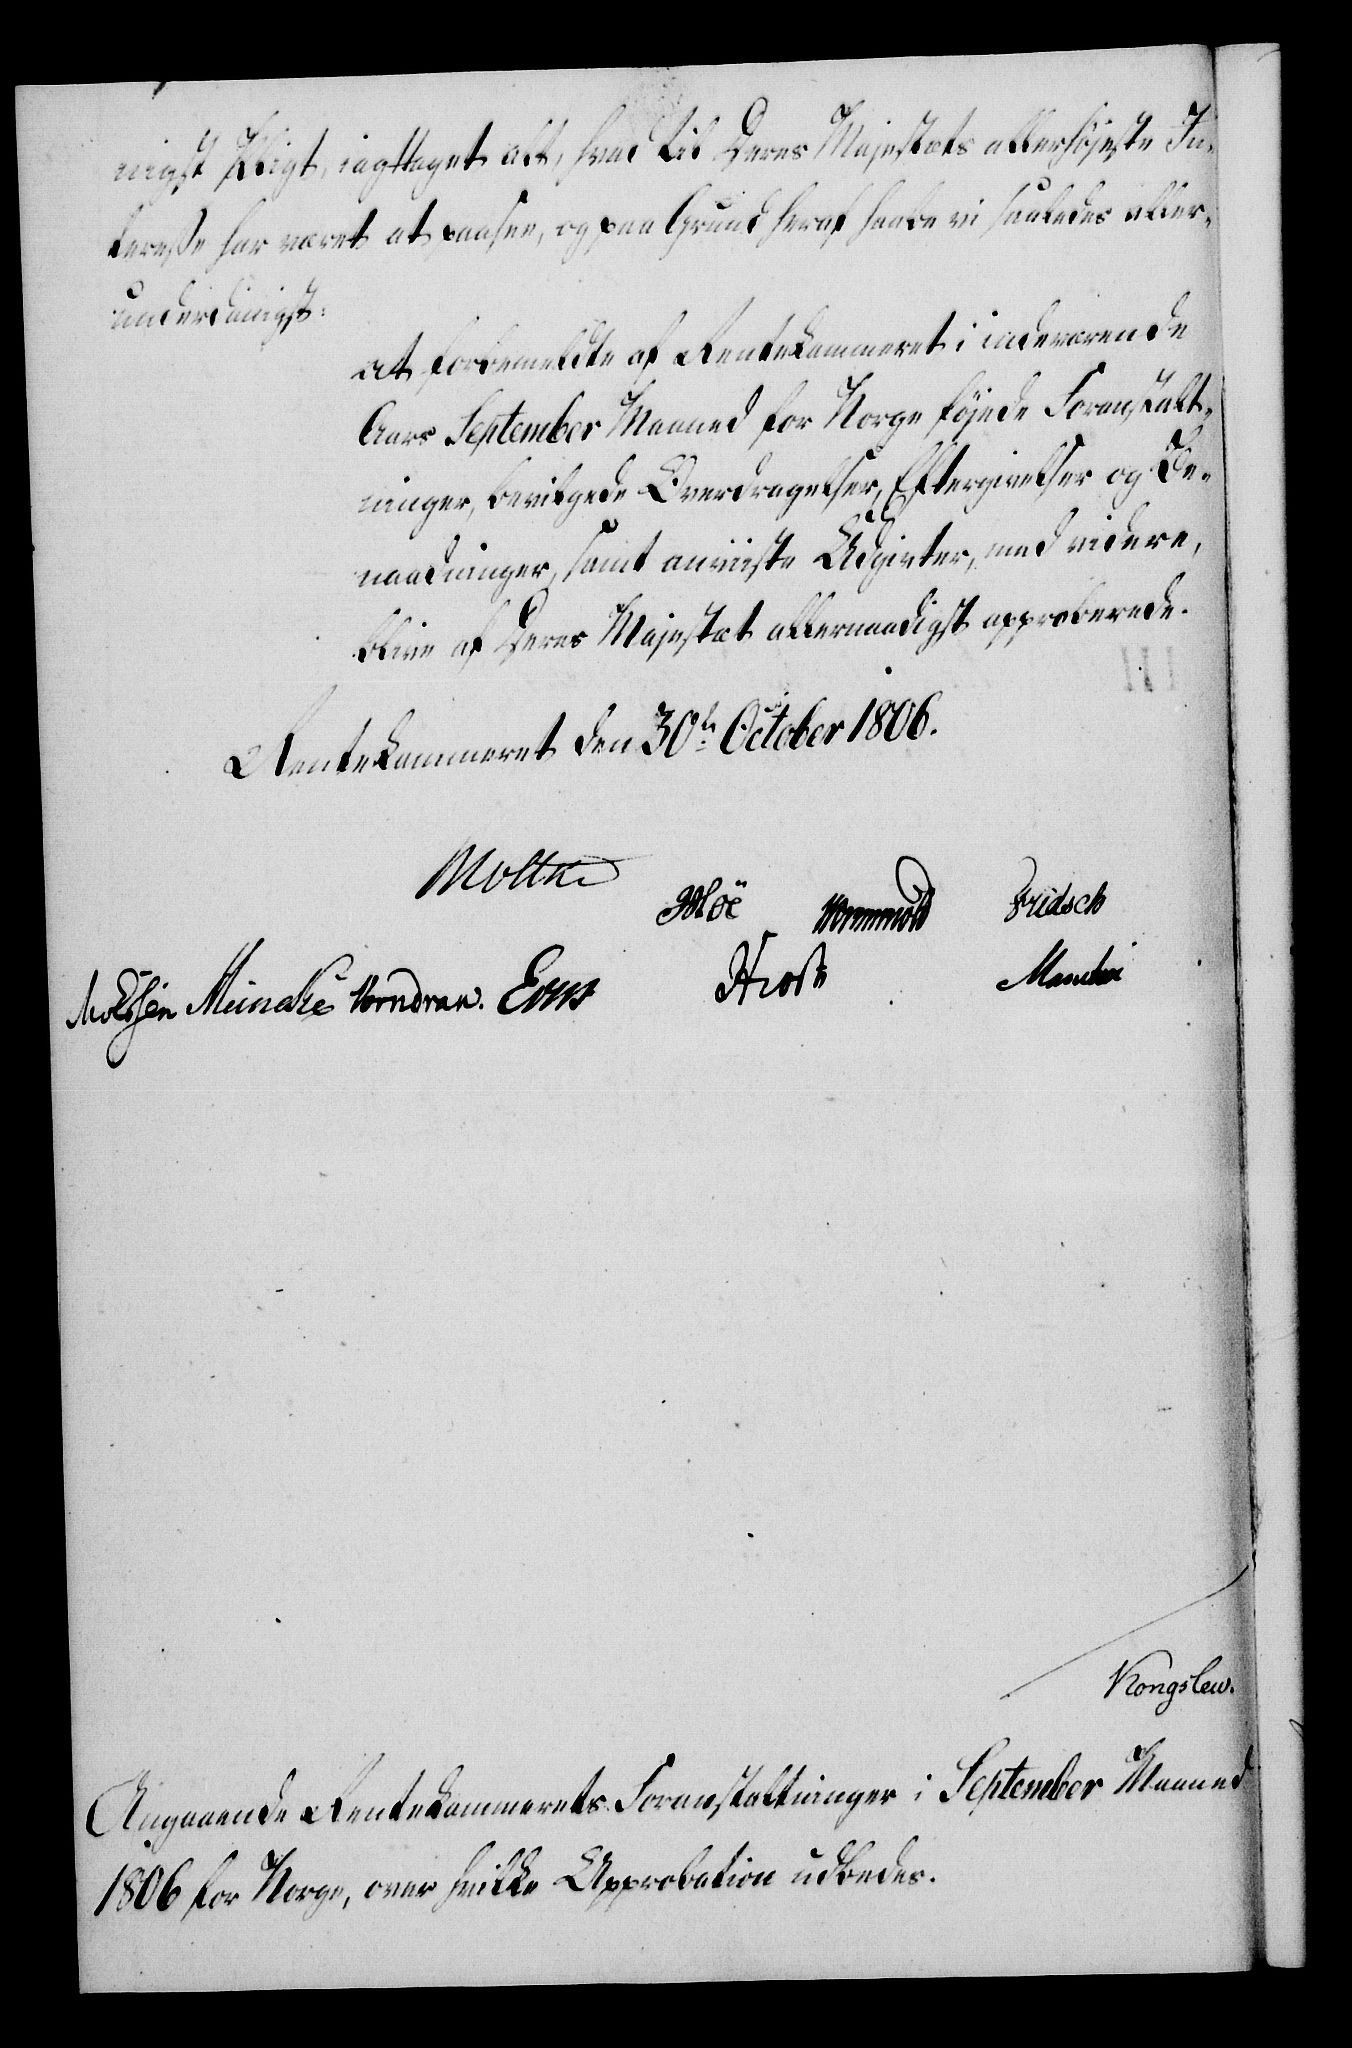 nigst Pligt, iagttaget alt, hvad til Deres Majestæts allerhøjeste In-
teresse har været at paasee, og paa Grund heraf haabe vi saaledes aller-
underdanigst:
at forbemeldte af Rentekammeret i indeværende
Aars September Maaned for Norge føjede Foranstalt-
ninger, bevilgede Overdragelser, Eftergivelser og Be-
naadninger, samt anviiste Udgivter, med videre,
blive af Deres Majestæt allernaadigst approberede.
Rentekammeret den 30te October 1806.
Moltke
Wormskiold Fridsch
Meincke Vorndran.
Kongslew.
Angaaende Rentekammerets Foranstaltninger i September Maaned
1806 for Norge, over hvilke Approbation udbedes.